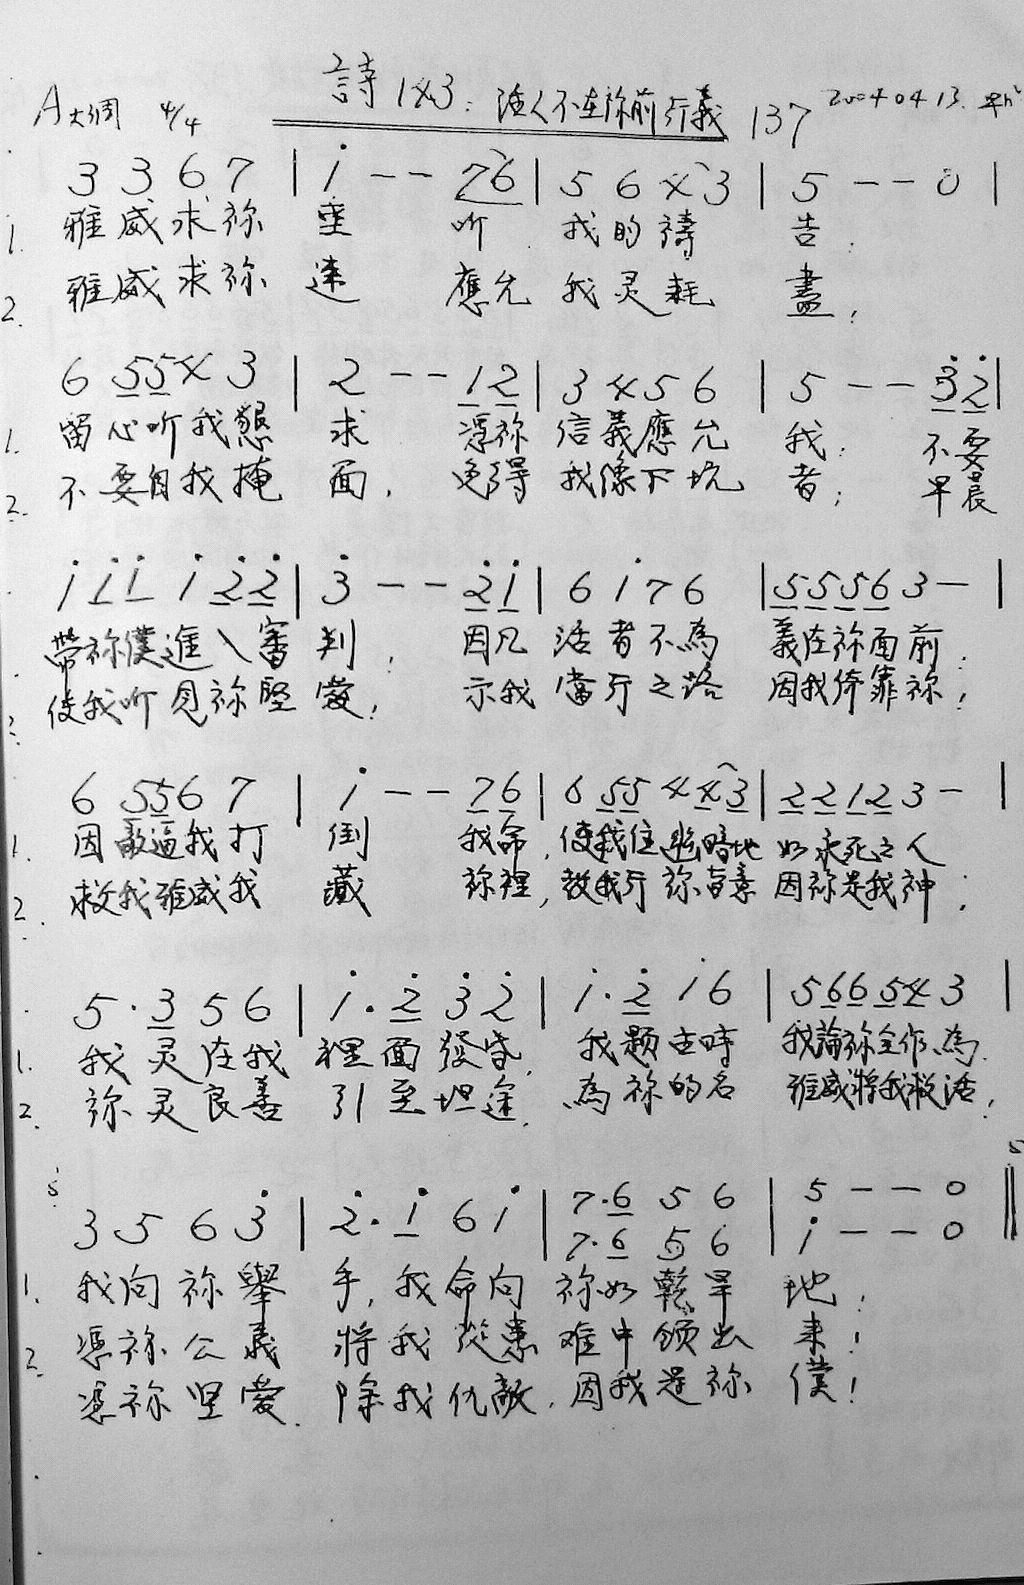 詩143：活人不在祢前行義 137 2004 04 13.
A大调 4/4
3 3 6 7 | i - - 7 6 | 5 6 4 3 | 5 - - 0 |
1. 雅威求祢 垂 听 我的禱 告；
2. 雅威求祢 速 應允 我灵耗 盡；
6 5 5 4 3 | 2 - - 1 2 | 3 4 5 6 | 5 - - 3̇ 2̇ |
1. 留心听我懇 求 憑祢 信義應允 我； 不要
2. 不要自我掩 面， 免得 我像下坑 者； 早晨
i i i i 2̇ 2̇ | 3̇ - - 2̇ i | 6 i 7 6 | 5 5 5 6 3 - |
帶祢僕進入審 判， 因凡 活者不為 義在祢面前；
2. 使我听見祢堅 愛； 示我 當行之路 因我倚靠祢；
6 5 5 6 7 | i - - 7 6 | 6 5 5 4 4 3 | 2 2 1 2 3 - |
1. 因敵逼我打 倒 我命，使我住幽暗地 如永死之人
2. 救我雅威我 藏 祢裡，教我行祢旨意 因祢是我神；
5 · 3 5 6 | i · 2̇ 3̇ 2̇ | i · 2̇ i 6 | 5 6 6 5 4 3 |
1. 我灵在我 裡面發昏， 我题古時 我論祢全作為
2. 祢灵良善 引至坦途， 為祢的名 雅威將我救活，
3 5 6 3̇ | 2̇ · i 6 i | 7 · 6 5 6 | 5 - - 0
7 · 6 5 6 | i - - 0
1. 我向祢舉 手，我命向 祢如乾旱 地；
2. 憑祢公義 將我從患 难中领出 来！
憑祢坚愛 除我仇敵，因我是祢 僕！